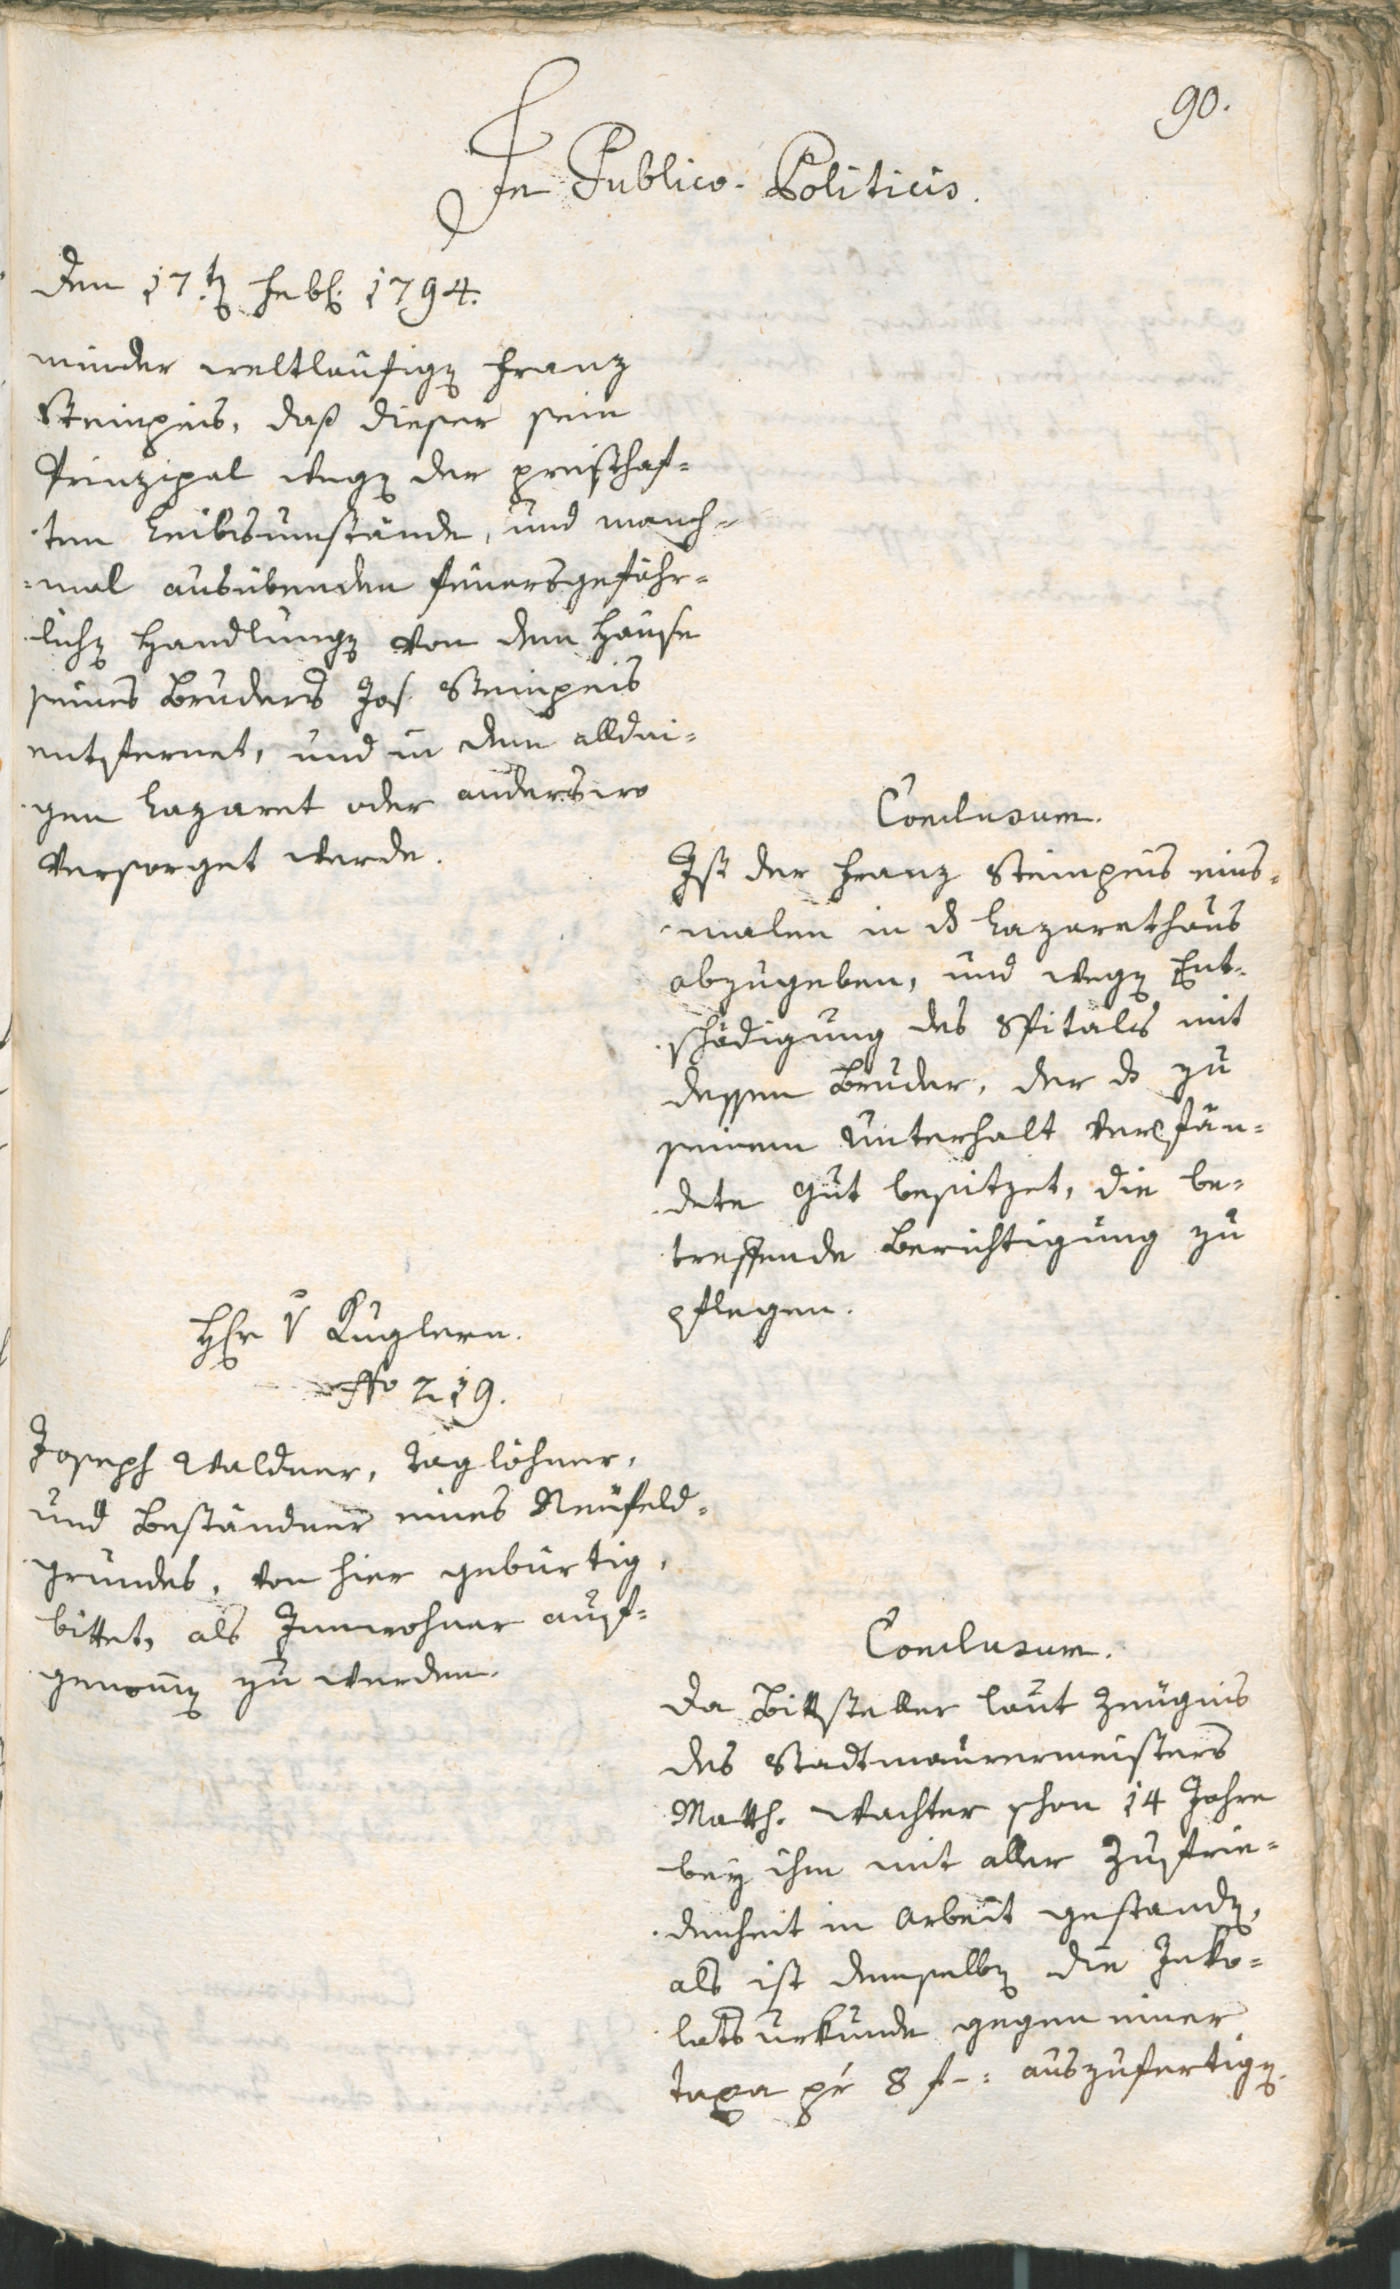 90.
In Publico-Politicis.
Den 17.t Feb. 1794.
minder weltläufig Franz
Steinpeis, daß dieser sein
Prinzipal weg der presthaf=
ten Leibsumstände, und manch=
=mal ausübenden feuersgefähr=
lich Handlung von dem Hause
seines Bruders Jos. Steinpeis
entfernet, und in dem alldai=
gen Lazaret oder anderswo
versorget werde.
Conclusum.
Ist der Franz Steinpeis eins=
malen in ds Lazarethaus
abzugeben, und weg Ent=
schädigung des Spitals mit
dessen Bruder, der ds zu
seinem Unterhalt verpfän=
dete Gut besitzet, die be=
treffende Berichtigung zu
pflegen.
Hr v Kuglern.
No 219.
Joseph Waldner, Taglöhner,
und Beständner eines Neufeld=
grundes, von hier gebürtig,
bittet, als Innwohner auf=
genom̄ zu werden.
Conclusum.
Da Bittsteller laut Zeugnis
des Stadtmaurermeisters
Matth. Wachter schon 14 Jahre
bey ihm mit aller Zufrie=
denheit in Arbeit gestand,
als ist demselb die Inko=
latsurkunde gegen einer
Taxa pr 8 f-: auszufertig.